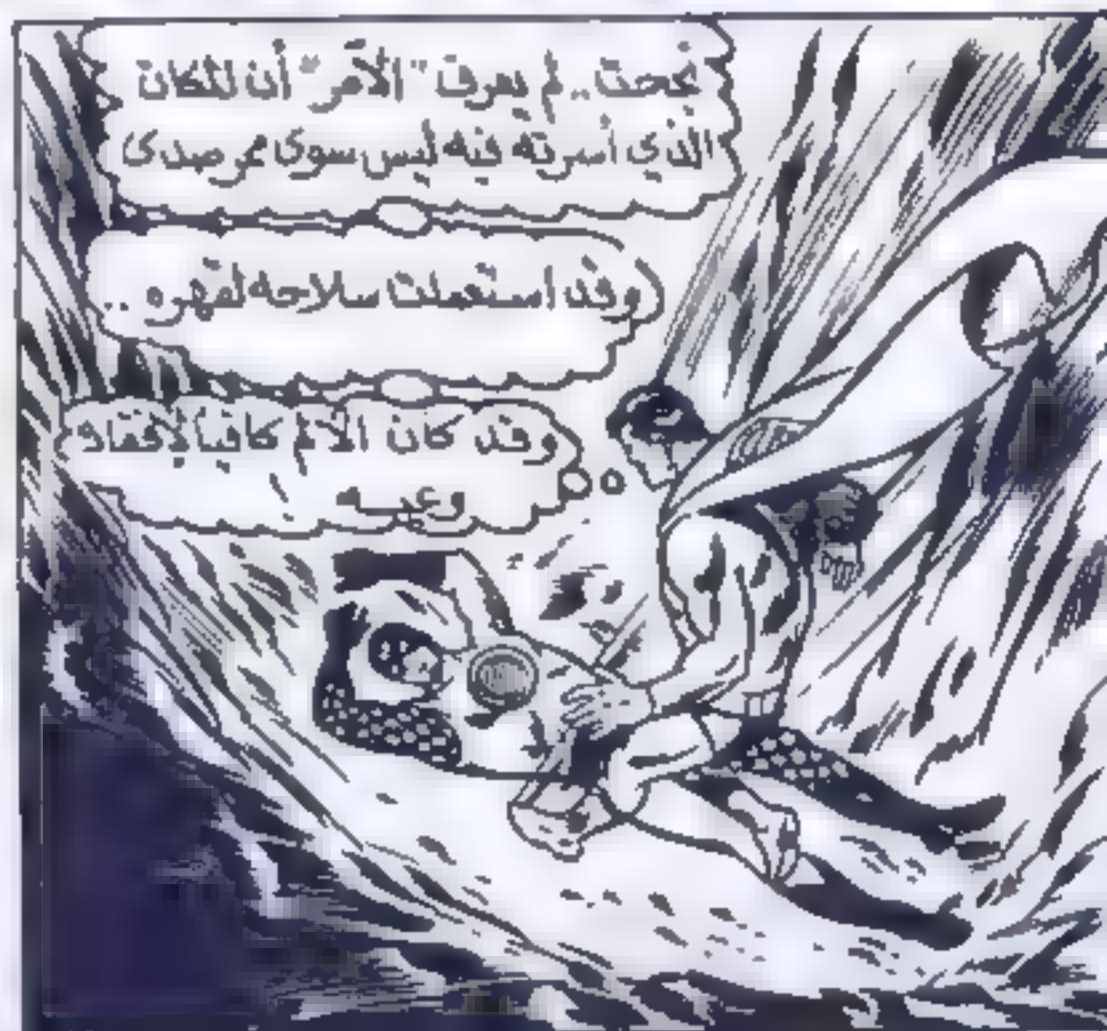 نجحت.. لم يعرف "الآمر" أن المكان
الذي أسرته فيه ليس سوى ممر صدى
وقد استعملت سلاحه لقهره..
وقد كان الألم كافياً لإفقاده
وعيه !